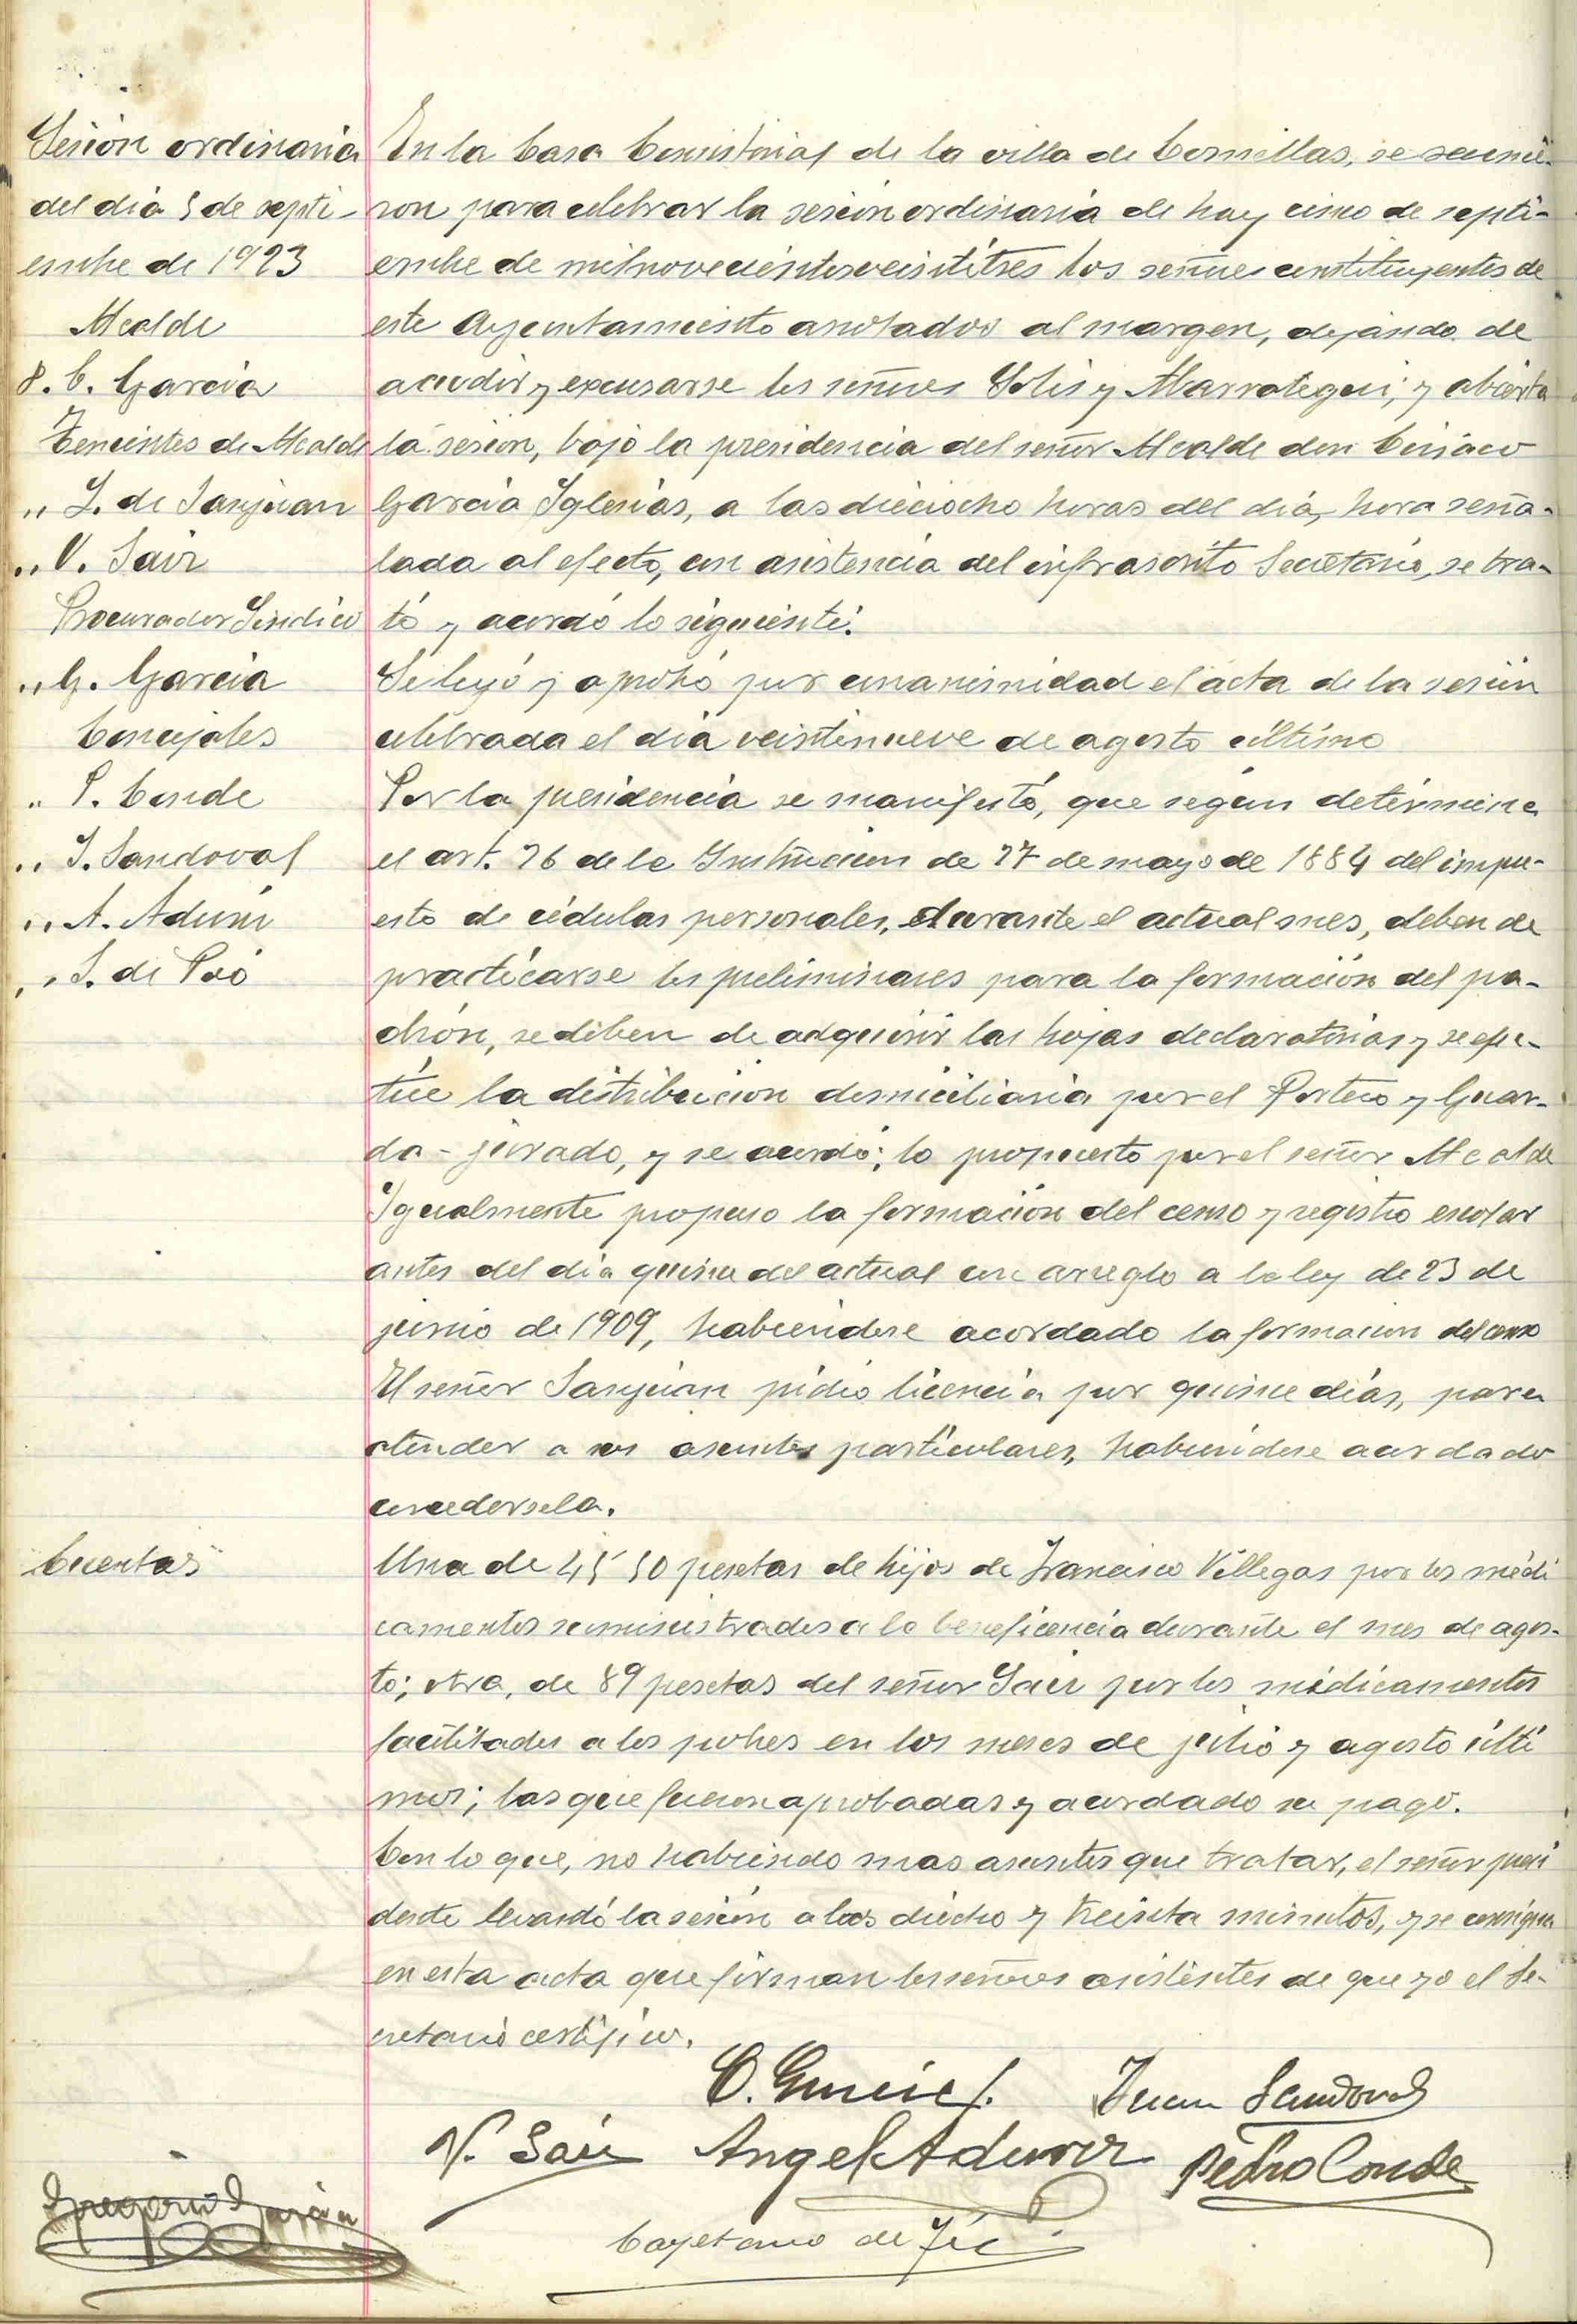 Sesión ordinaria
del dia 5 de septi-
embre de 1923
Alcalde
D. C. García
Tenientes de Alcalde
" I. de Sanjuan
" V. Saiz
Procurador Sindico
" G. García
Concejales
" P. Conde
" J. Sandoval
" A. Aduna
" S. de Poó
En la Casa Consistorial de la villa de Comillas, se reunie-
ron para celebrar la sesión ordinaria de hoy cinco de septi-
embre de mil novecientos veintitres los señores constituyentes de
este Ayuntamiento anotados al margen, dejando de
acudir y excusarse los señores Solis y Marrotegui; y abierta
la sesion, bajo la presidencia del señor Alcalde don Ciriaco
García Iglesias, a las dieciocho horas del dia, hora seña-
lada al efecto, con asistencia del infrascrito Secretario, se tra-
tó y acordó lo siguiente:
Se leyó y aprobó por unanimidad el acta de la sesión
celebrada el dia veintinueve de agosto último
Por la presidencia se manifestó, que según determina
el art. 26 de la Instrucción de 27 de mayo de 1884 del impu-
esto de cédulas personales, durante el actual mes, deben de
practicarse los preliminares para la formación del pa-
drón, se deben de adquirir las hojas declaratorias y se efec-
túe la distribucion domiciliaria por el Portero y Guar-
da-jurado, y se acordó; lo propuesto por el señor Alcalde
Igualmente propuso la formación del censo y registro escolar
antes del dia quince del actual con arreglo a la ley de 23 de
junio de 1909, habiendose acordado la formacion del censo
El señor Sanjuan pidió licencia por quince dias, para
atender a sus asuntos particulares, habiendose acordado
concedersela.
Cuentas
Una de 45'50 pesetas de hijos de Francisco Villegas por los medi
camentos suministrados a la beneficencia durante el mes de agos-
to; otra, de 89 pesetas del señor Saiz por los medicamentos
facilitados a los pobres en los meses de julio y agosto ulti
mos; las que fueron aprobadas y acordado su pago.
Con lo que, no habiendo mas asuntos que tratar, el señor presi
dente levantó la sesión a las dieciocho y treinta minutos, y se consigna
en esta acta que firman los señores asistentes de que yo el Se-
cretario certifico.
C. García Juan Sandoval
V. Saiz Angel Aduna Pedro Conde
Gregorio García
Cayetano de